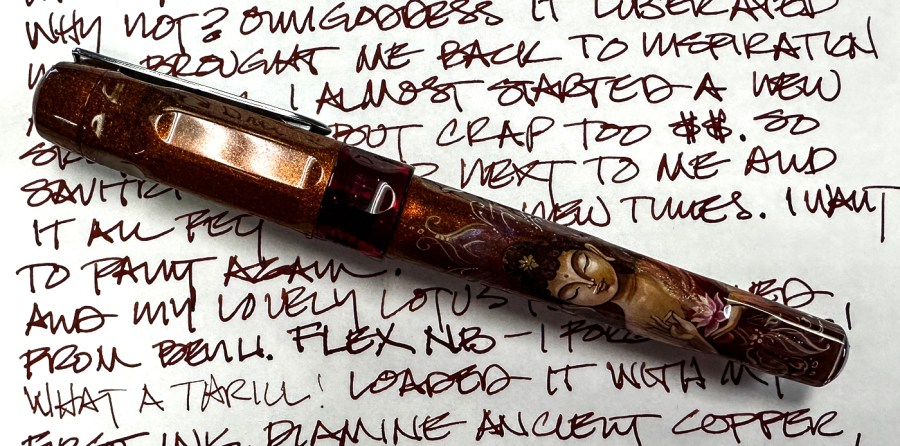 WHY NOT? OMGODDESS IT LIBERATED
BROUGHT ME BACK TO INSPIRATION
I ALMOST STARTED A NEW
CRAP TOO $$. SO
NEXT TO ME AND
NEW TUNES. I WANT
IT ALL
TO PAINT AGAIN.
AND MY LOVELY LOTUS
FROM BENU. FLEX NB - I
WHAT A THRILL! LOADED IT WITH MY
FIRST INK, DIAMINE ANCIENT COPPER,